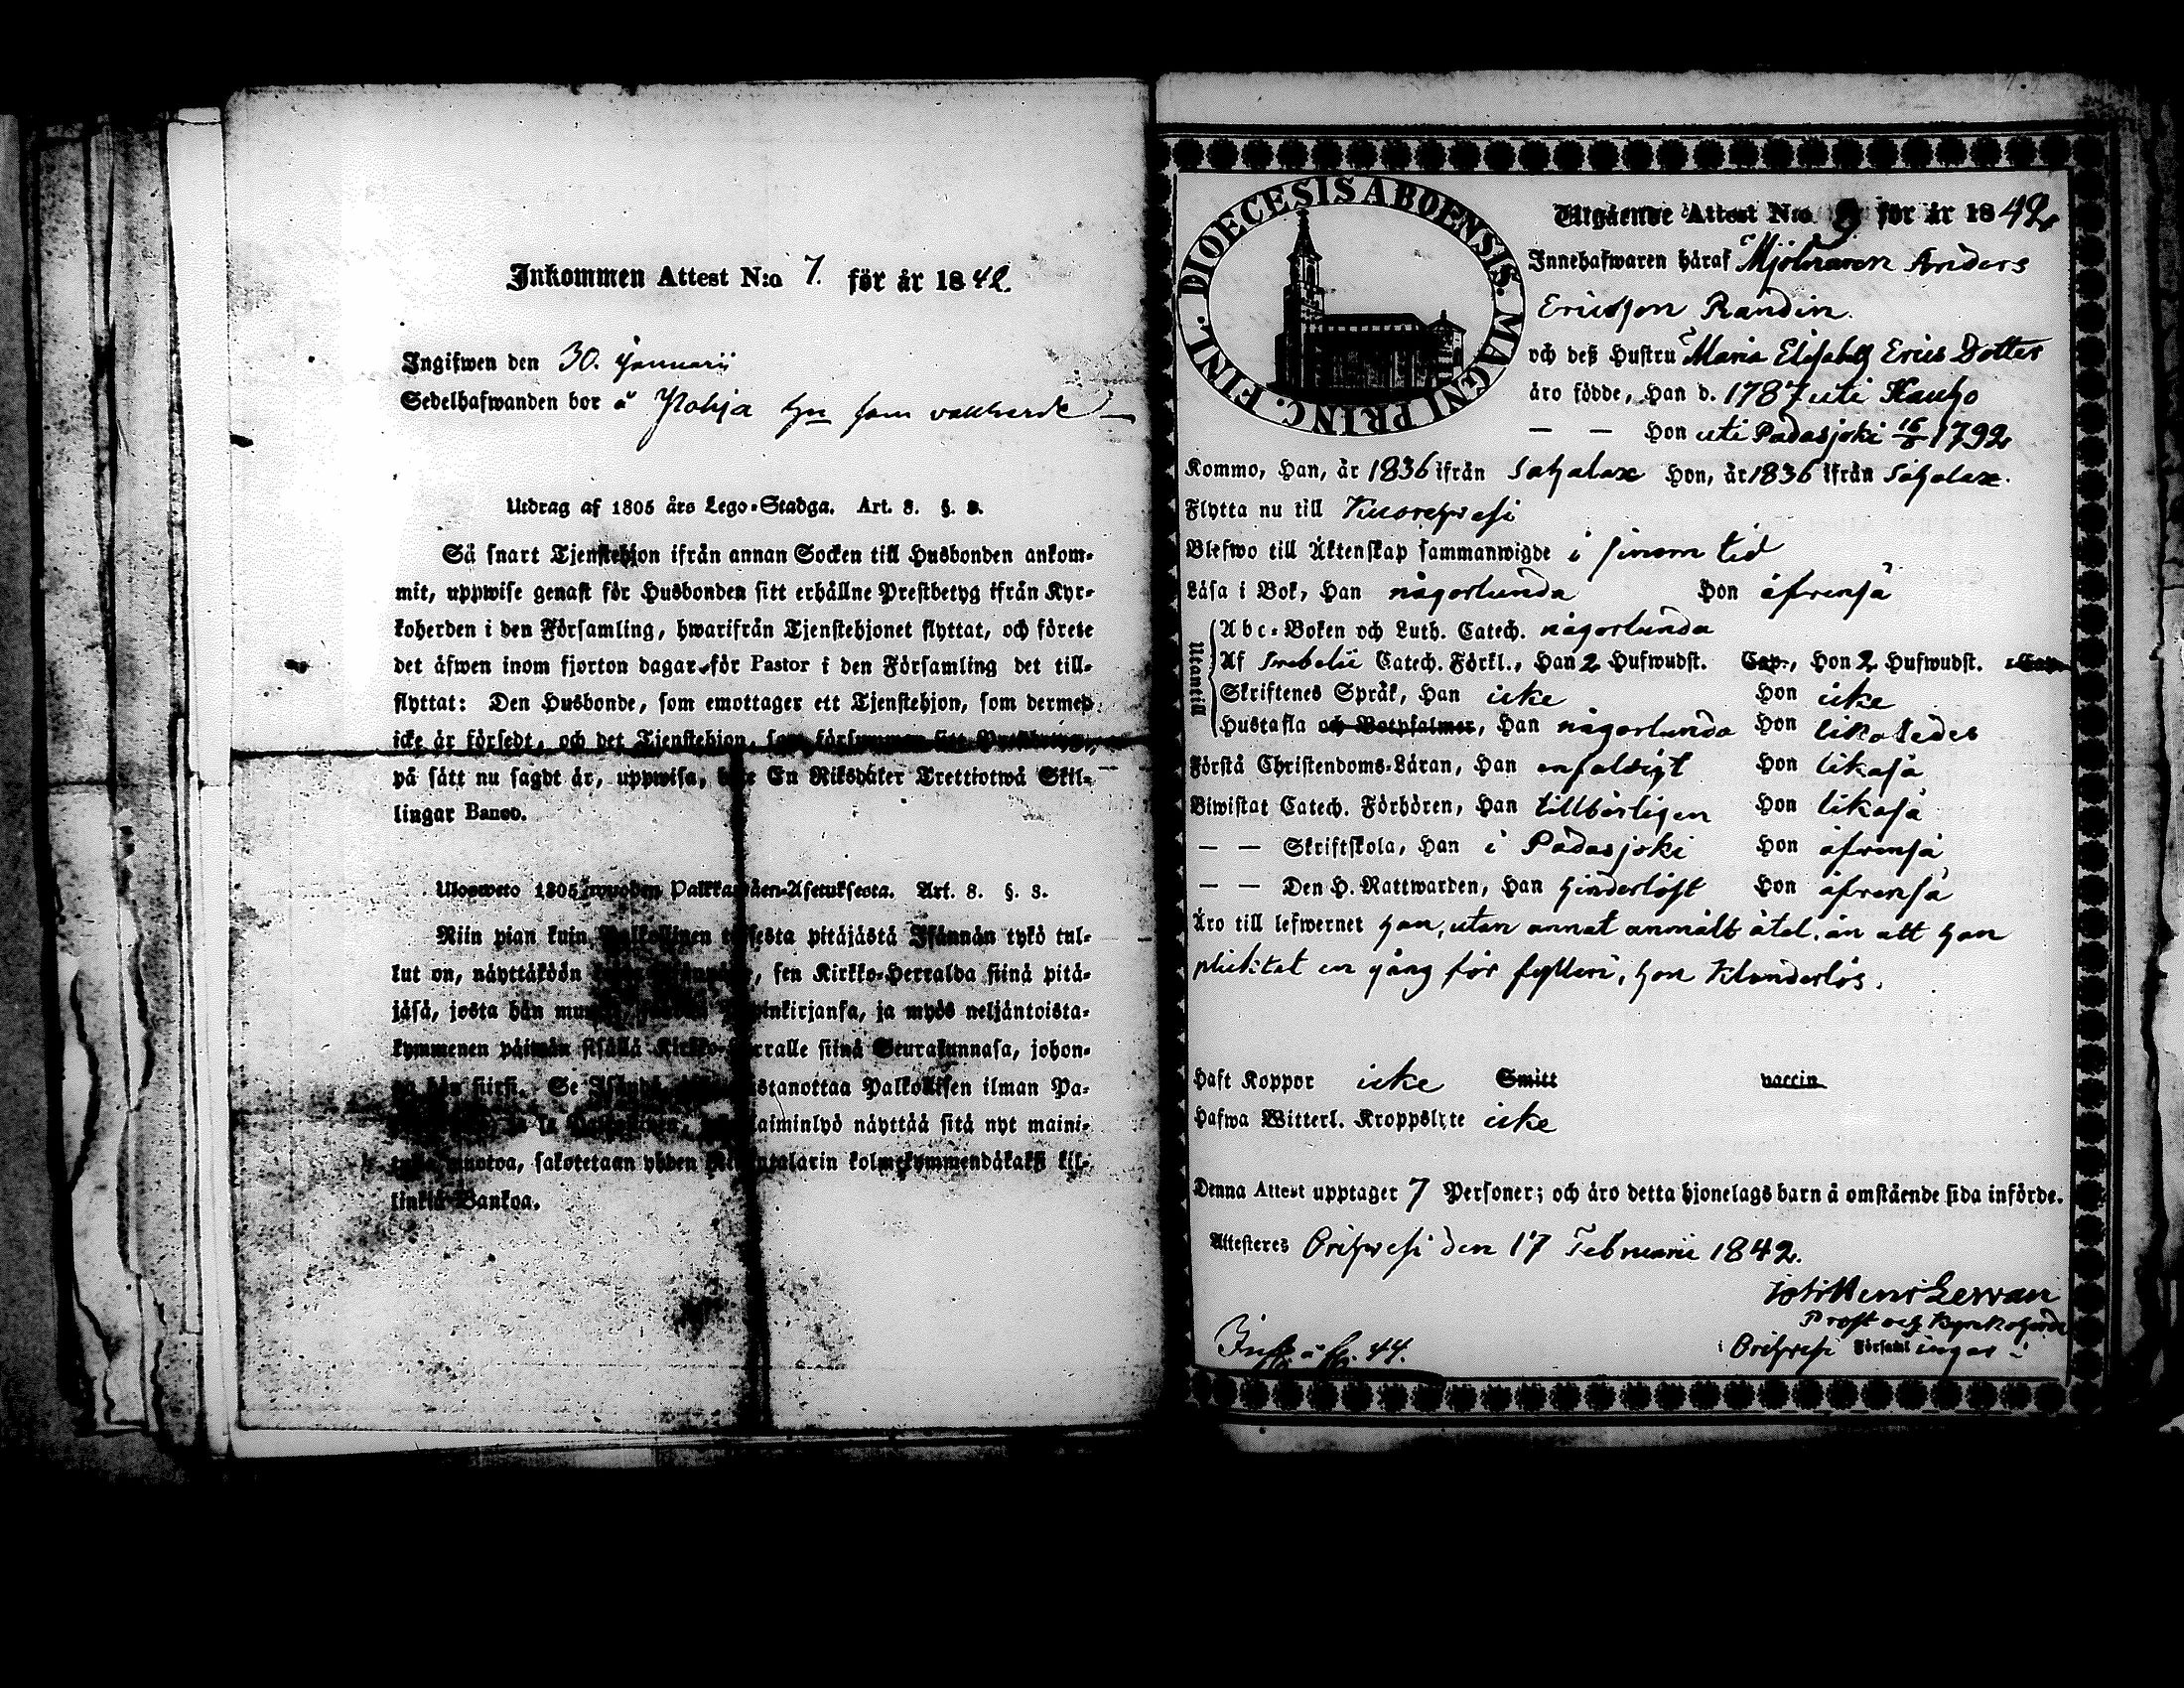 Inkommen Attest N:o 7. för år 1842.
Ingifwen den 30. Januarii
Sedelhafwanden bor å Pohja
Utdrag af 1805 års Lego-Stadga. Art. 8. §. 8.
Så snart Tjenstehjon ifrån annan Socken till Husbonden ankom-
mit, uppwise genast för Husbonden sitt erhållne Prestbetyg ifrån Kyr-
koherden i den Församling, hwarifrån Tjenstehjonet flyttat, och förete
det äfwen inom fjorton dagar för Pastor i den Församling det till-
flyttat: Den Husbonde, som emottager ett Tjenstehjon, som dermed
icke är försedt, och det Tjenstehjon, som försummar sitt Prestbetyg,
på sätt nu sagdt är, uppwisa, böte En Riksdaler Trettiotwå Skil-
lingar Banco.
Ulosweto 1805 wuoden Palkkawäen-Asetuksesta. Art. 8. §. 8.
Niin pian kuin Palkollinen toisesta pitäjästä Isännän tykö tul-
kut on, näyttäköön sen Kirkko-Herralda siinä pitä-
jäsä, josta hän ja myös neljäntoista-
kymmenen päiwän sisällä Kirkko-Herralle siinä Seurakunnasa, johon-
ga hän siirsi. Se Isändä, wastanottaa Palkollisen ilman Pa-
laiminlyö näyttää sitä nyt maini-
muotoa, sakotetaan yhden Riksitalarin kolmekymmendäkaksi kil-
linkiä Bankoa.
DIOECESIS ABOENSIS. MAGNI PRINC. FINL.
Utgående Attest N:o 9 för år 1842
Innehafwaren häraf Mjölnaren Anders
Ericsson Randin.
och deß Hustru Maria Elisabeth Erics Dotter
äro födde, Han d. 1787 uti Hauho
— — Hon uti Padasjoki 16/8 1792
Kommo, Han, år 1836 ifrån Sahalax Hon, år 1836 ifrån Sahalax.
Flytta nu till Kuorehwesi
Blefwo till Äktenskap sammanwigde i sinom tid
Läsa i Bok, Han någorlunda Hon äfvenså
Utantill
Abc-Boken och Luth. Catech. någorlunda
Af Svebelii Catech. Förkl., Han 2 Hufwudst. Cap., Hon 2 Hufwudst. Cap.
Skriftenes Språk, Han icke Hon icke
Hustafla och Botpsalmer, Han någorlunda Hon likaledes
Förstå Christendoms-Läran, Han enfaldigt Hon likaså
Biwistat Catech. Förhören, Han tillbörligen Hon likaså
— — Skriftskola, Han i Padasjoki Hon äfvenså
— — Den H. Nattwarden, Han hinderlöst Hon äfvenså
Äro till lefwernet han, utan annat anmält åtal, än att han
pliktat en gång för fylleri, hon klanderlös.
Haft Koppor icke Smitt vaccin
Hafwa Witterl. Kroppslyte icke
Denna Attest upptager 7 Personer; och äro detta hjonelags barn å omstående sida införde.
Attesteres Orihwesi den 17 Februarii 1842.
Prost och Kyrkoherde
i Orihwesi Församlingar